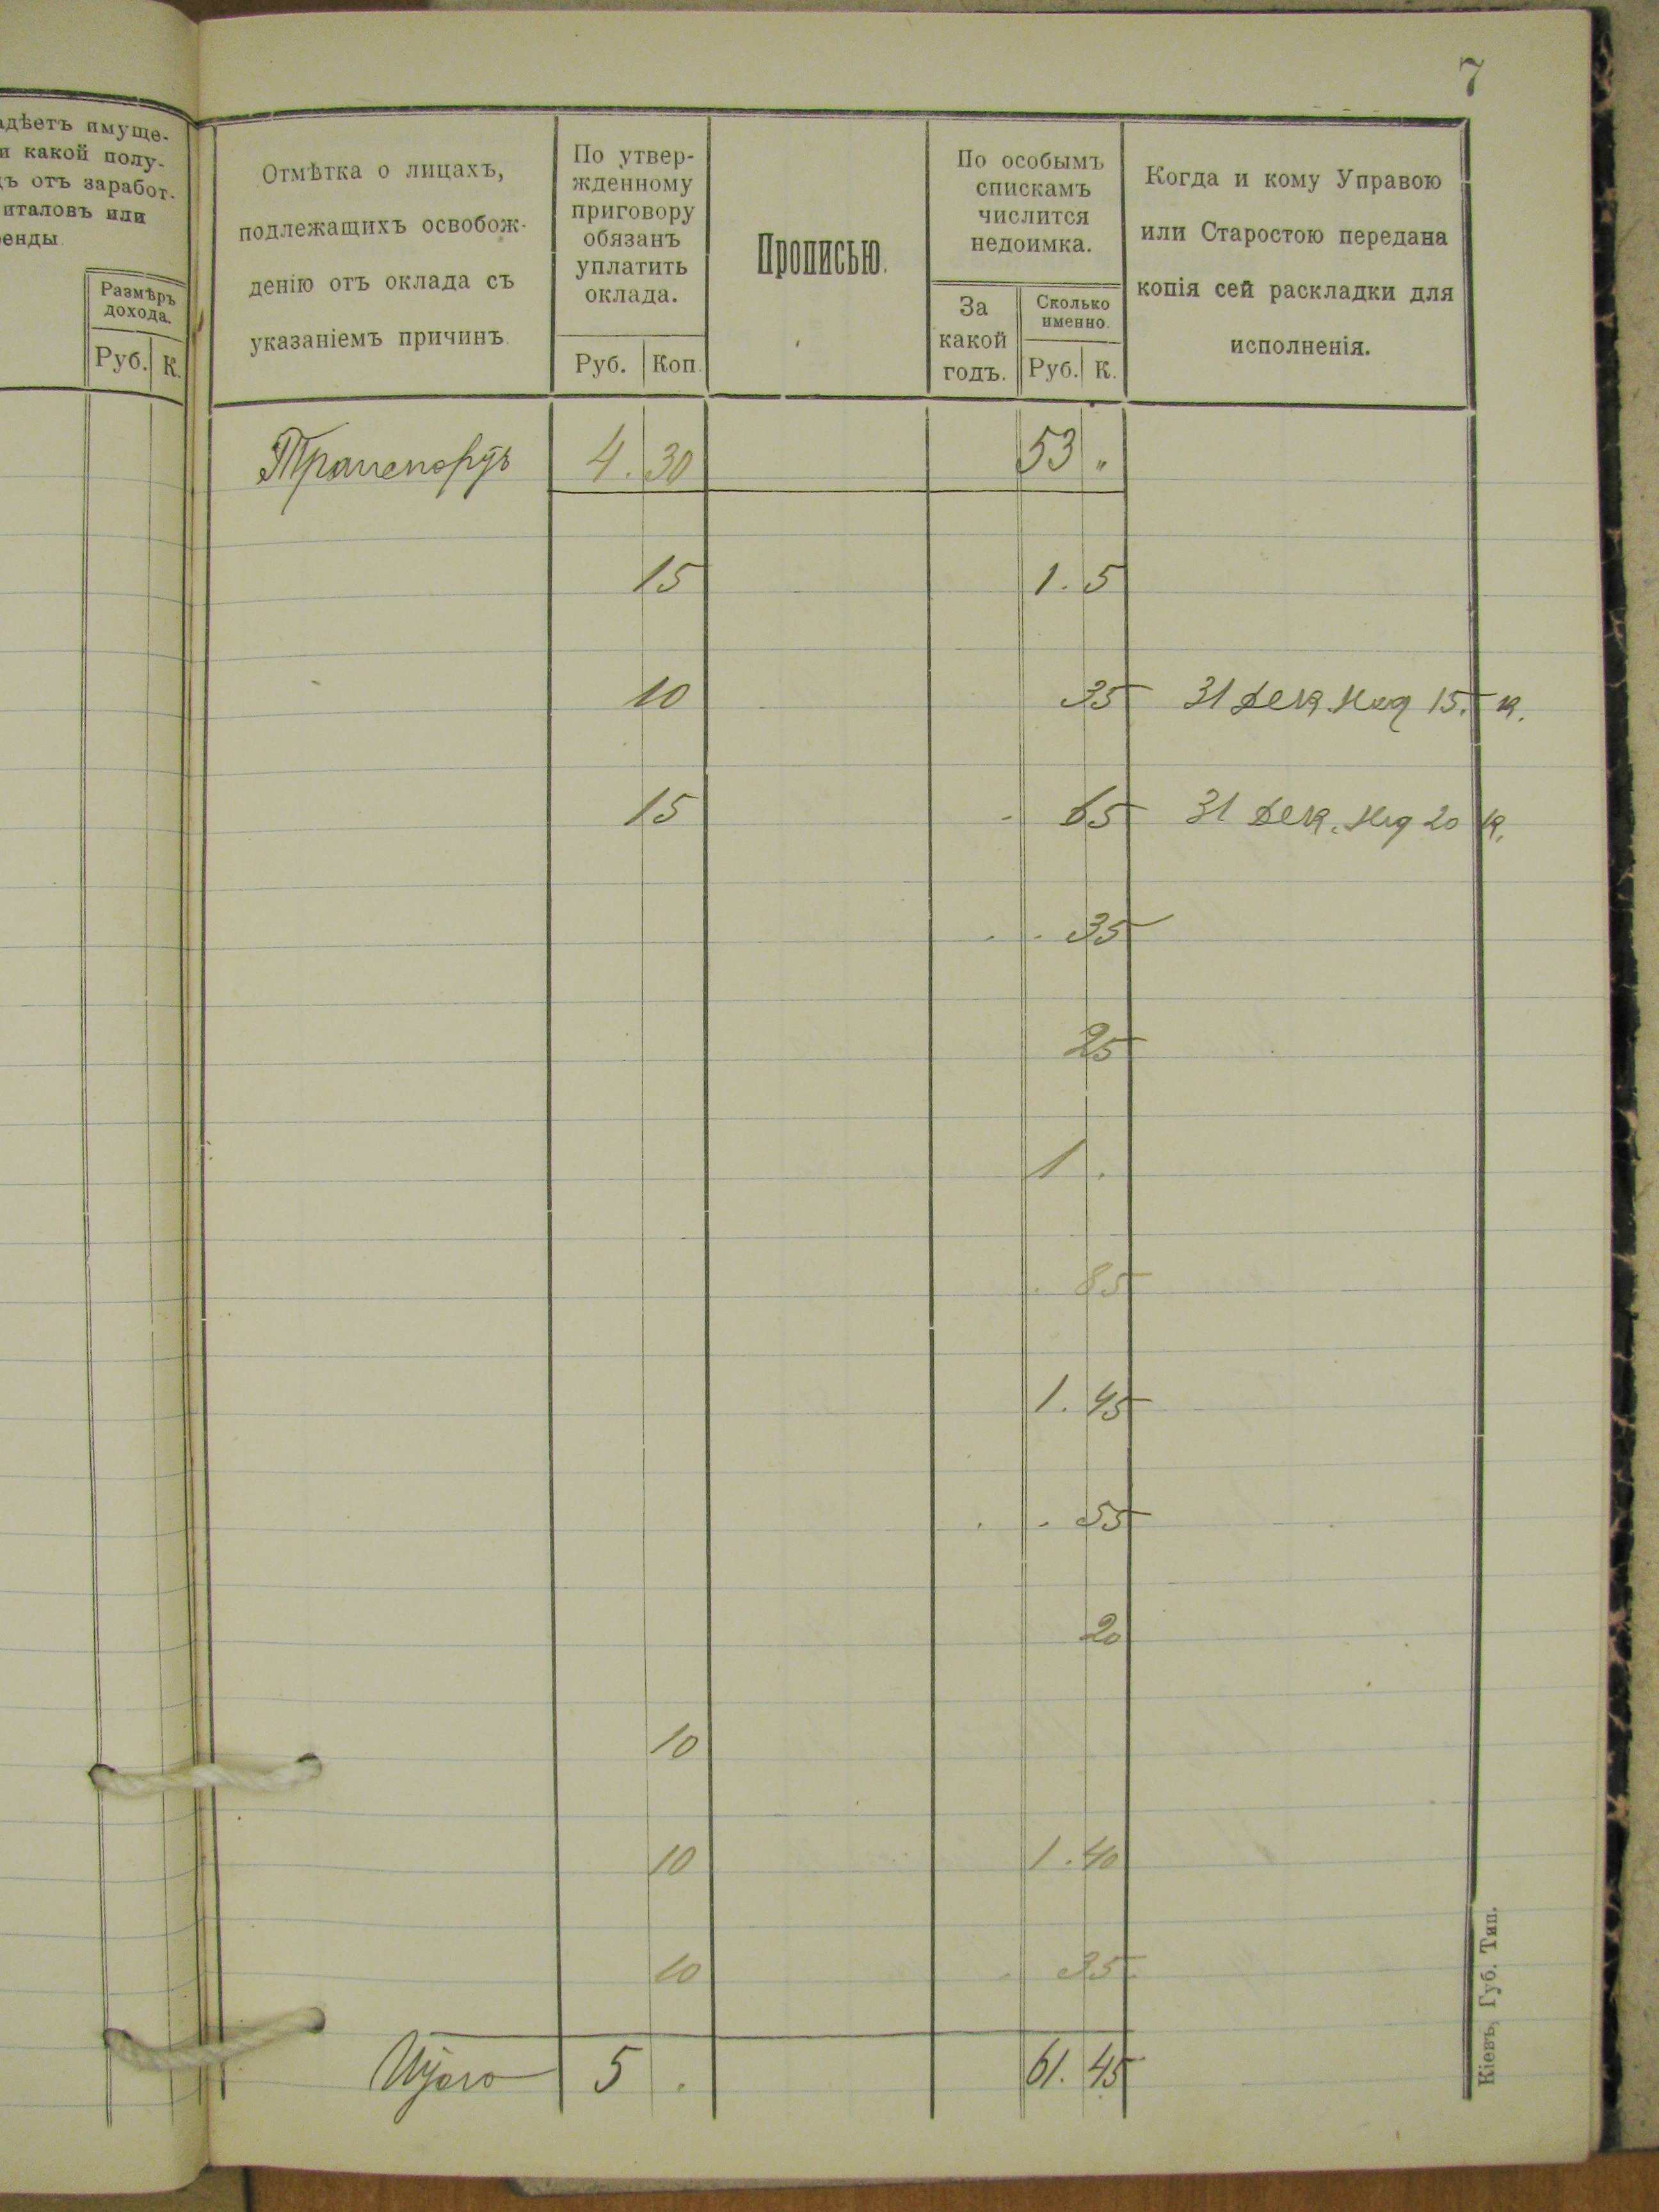 7
адѣетъ имуще-
и какой полу-
дъ отъ заработ-
италовъ или
ренды.
Размѣръ
дохода.
Руб. К.
Отмѣтка о лицахъ,
подлежащихъ освобож-
денію отъ оклада съ
указаніемъ причинъ.
По утвер-
жденному
приговору
обязанъ
уплатить
оклада.
Руб. Коп.
Прописью.
По особымъ
спискамъ
числится
недоимка.
За
какой
годъ.
Сколько
именно.
Руб. К.
Когда и кому Управою
или Старостою передана
копія сей раскладки для
исполненія.
Транспортъ 4. 30 53 "
15 1. 5
10 35 31 Дек 15. к.
15 65 31 Дек. 20 к.
35
25
1 .
85
1. 45
55
20
10
10 1. 40
10 35
Итого 5 . 61. 45
Кіевъ, Губ. Тип.